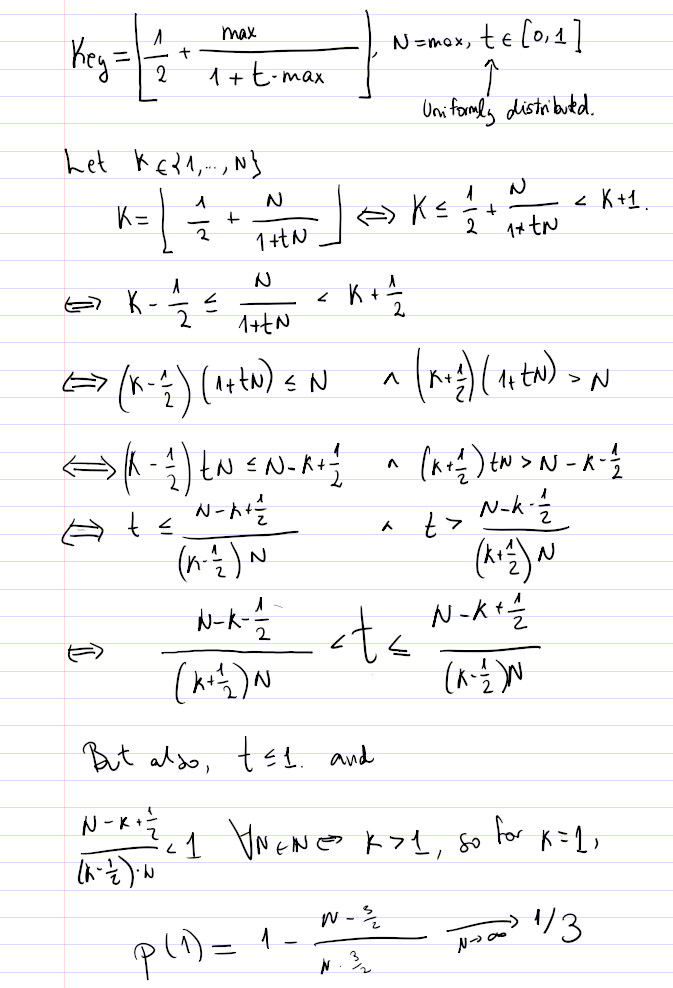 Key = ⌊ 1/2 + max/(1 + t·max) ⌋, N = max, t ∈ [0,1]
↑
Uniformly distributed.
Let K ∈ {1,..., N}
K = ⌊ 1/2 + N/(1+tN) ⌋ ⇔ K ≤ 1/2 + N/(1+tN) < K+1.
⇔ K - 1/2 ≤ N/(1+tN) < K + 1/2
⇔ (K - 1/2)(1+tN) ≤ N ∧ (K+1/2)(1+tN) > N
⇔ (K - 1/2) tN ≤ N - K + 1/2 ∧ (K+1/2) tN > N - K - 1/2
⇔ t ≤ (N - K + 1/2)/((K - 1/2) N) ∧ t > (N - K - 1/2)/((K + 1/2) N)
⇔ (N - K - 1/2)/((K + 1/2) N) < t ≤ (N - K + 1/2)/((K - 1/2) N)
But also, t ≤ 1. and
(N - K + 1/2)/((K - 1/2)·N) < 1 ∀N∈N ⇔ K > 1, so for K = 1,
p(1) = 1 - (N - 3/2)/(N · 3/2) ⟶ N→∞ 1/3